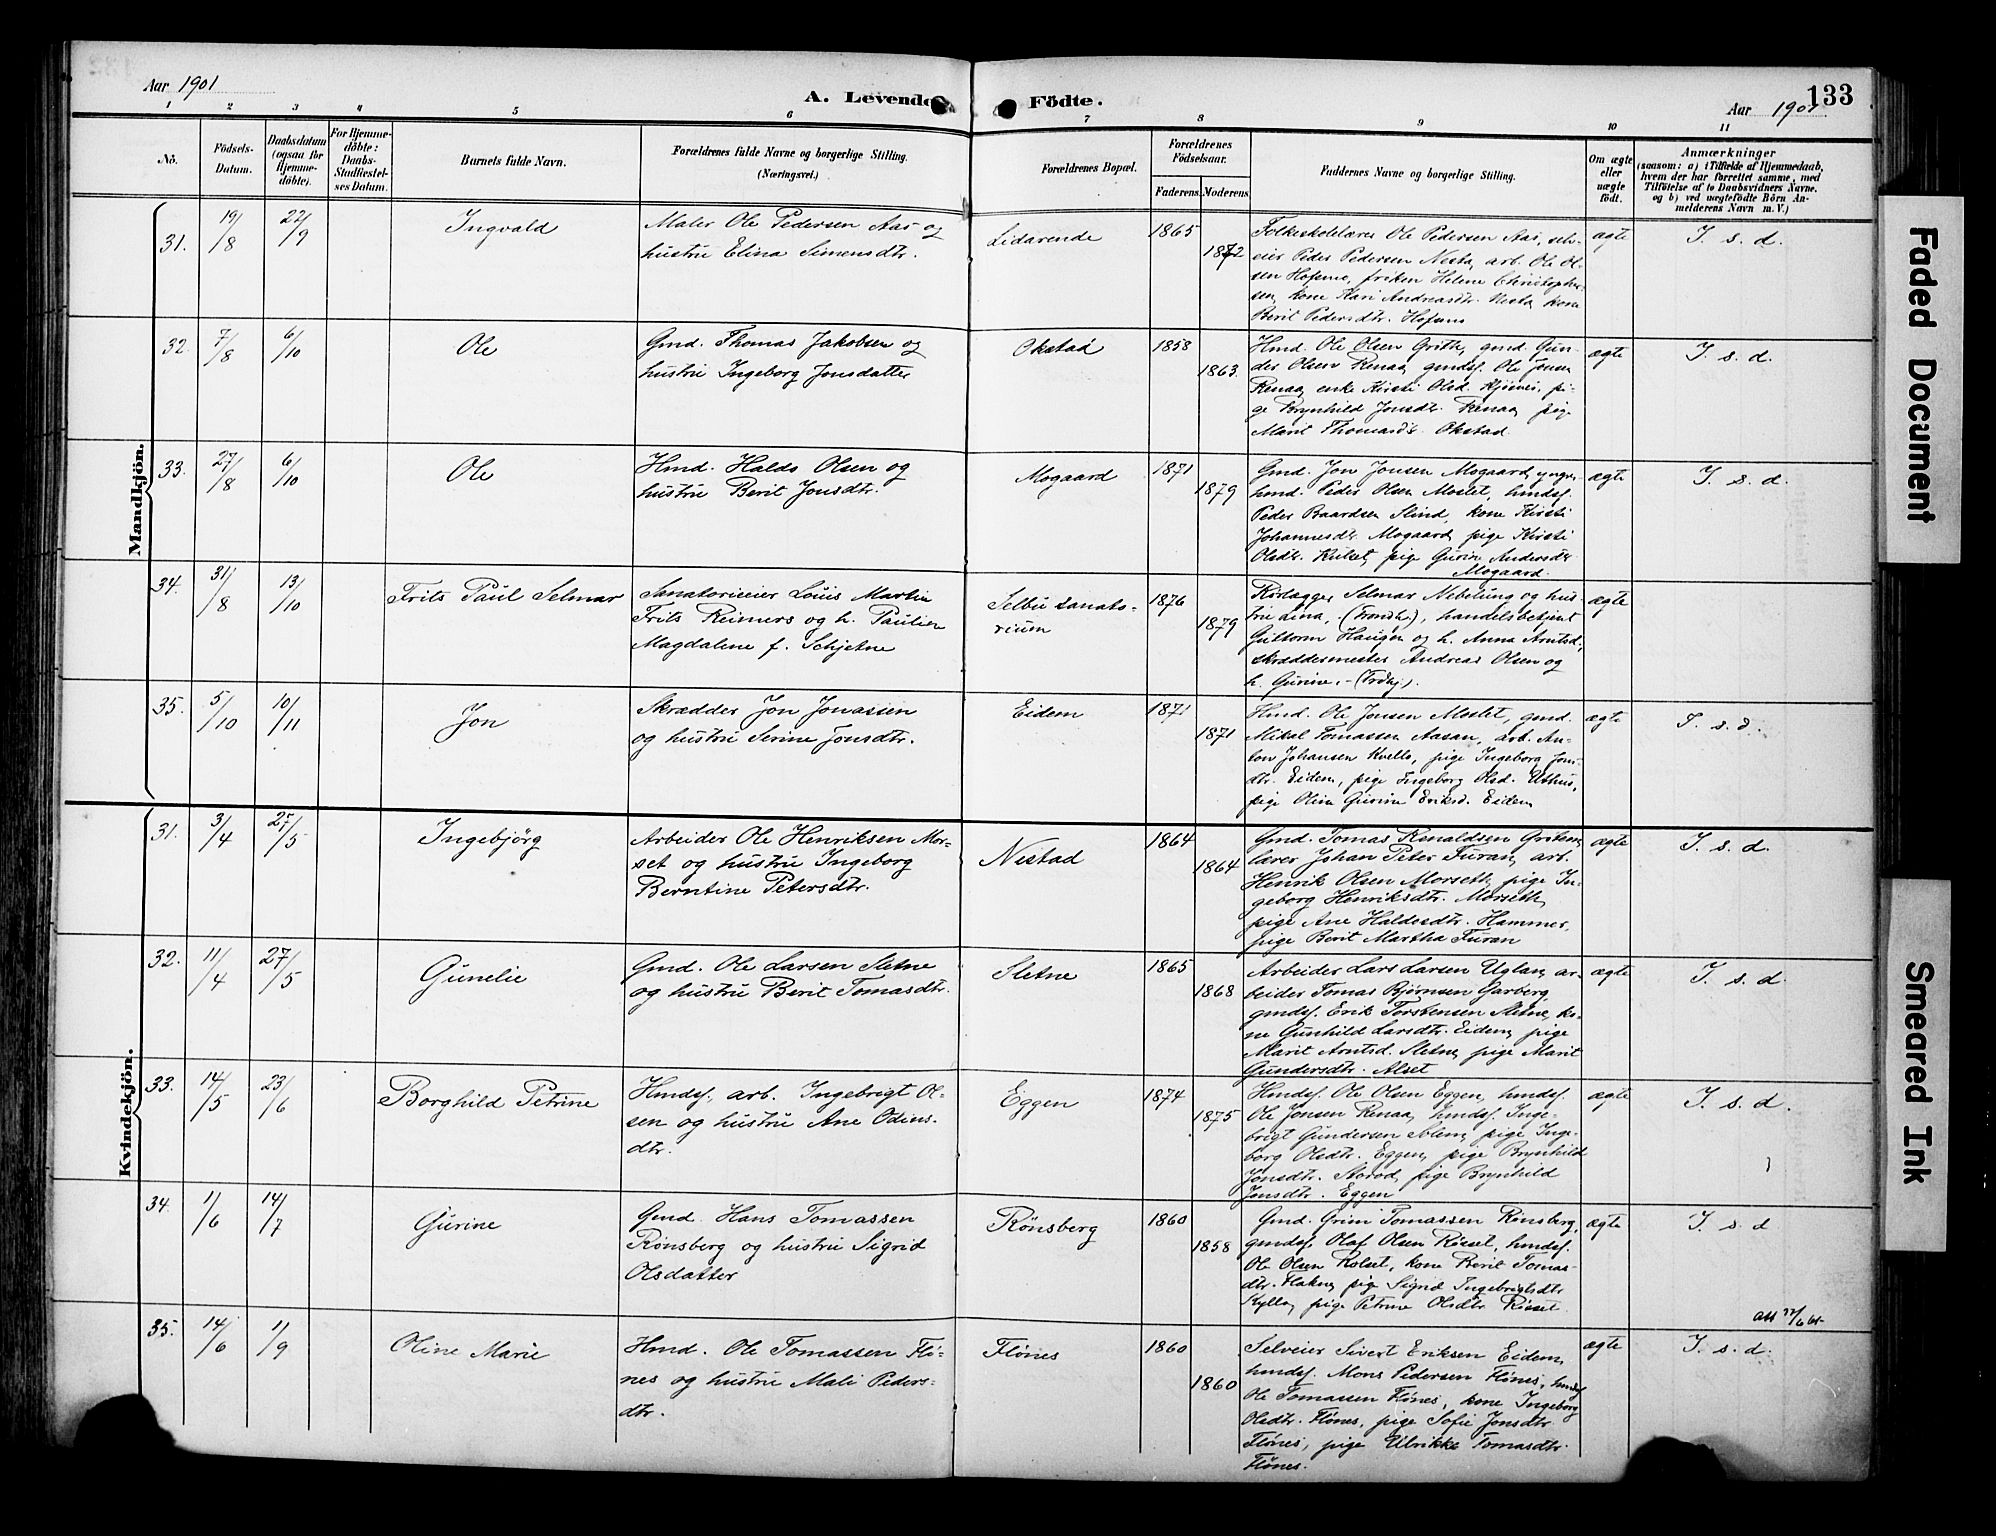 Aar 1901
A. Levende Födte.
133
Aar 1901
1 2 3 4 5 6 7 8 9 10 11
No.
Födsels-
Datum.
Daabsdatum
(ogsaa for
Hjemme-
döbte).
For Hjemme-
döbte:
Daabs-
Stadfæstel-
ses Datum.
Barnets fulde Navn.
Forældrenes fulde Navne og borgerlige Stilling.
(Næringsvei.)
Forældrenes Bopæl.
Forældrenes
Födselsaar.
Faderens.
Moderens.
Faddernes Navne og borgerlige Stilling.
Om ægte
eller
uægte
födt.
Anmærkninger
(saasom: a) i Tilfælde af Hjemmedaab,
hvem der har forrettet samme, med
Tilföielse af to Daabsvidners Navne.
og b) ved uægtefödte Börn An-
melderens Navn m. V.)
Mandkjön.
31.
19/8
22/9
Ingvald
Maler Ole Pedersen Aas og
hustru Elina Simensdtr.
Lidarende
1865
1872
Folkeskolelærer Ole Pedersen Aas, selv-
eier Peder Pedersen Nesta, arb. Ole Ol-
sen Hofsmo, frøken Helene Christopher-
sen, kone Kari Andreasdtr. Nesta, kone
Berit Pedersdtr. Hofsmo
ægte
I. s. d.
32.
7/8
6/10
Ole
Gmd. Thomas Jakobsen og
hustru Ingeborg Jonsdatter
Okstad
1858
1863.
Hmd. Ole Olsen Grøth, gmd. Gun-
der Olsen Renaa, gmdsf. Ole Jonsen
Renaa, enke Kirsti Olsd. Kjøsnes, pi-
ge Brynhild Jonsdtr. Renaa, pige
Marit Thomasd's. Okstad.
ægte
I. s. d.
33.
27/8
6/10
Ole
Hmd. Haldo Olsen og
hustru Berit Jonsdtr.
Mogaard
1871
1879
Gmd. Jon Jonsen Mogaard, yngre,
hmd. Peder Olsen Moslet, hmdsf.
Peder Baardsen Slind, kone Kirsti
Johannesdr. Mogaard, pige Kirsti
Olsdtr. Kulset, pige Gurine Andersdtr.
Mogaard.
ægte
I. s. d.
34.
31/8
13/10
Frits Paul Selmar
Sanatorieeier Louis Martin
Frits Reimers og h. Pauline
Magdalene f. Schjetne
Selbu sanato-
rium
1876
1879
Kirlægger Selmar Nebelung og hus-
tru Lina, (Trondh.), handelsbetjent
Guttorm Haugen og h. Anna Arntsd.,
skræddermester Andreas Olsen og
h. Gurine.- (Trdhj.).
ægte
35.
5/10
10/11
Jon
Skrædder Jon Jonassen
og hustru Serine Jonsdtr.
Eidem
1871
1871
Hmd. Ole Jonsen Moslet, gmd.
Mikal Tomassen Aasan, arb. An-
ton Johansen Kvello, pige Ingeborg Jons-
dtr. Eidem, pige Ingeborg Olsd. Uthus,
pige Olina Gurina Eriksd. Eidem
ægte
I. s. d.
Kvindekjön.
31.
3/4
25/5
Ingebjörg
Arbeider Ole Henriksen Mor-
set og hustru Ingeborg
Berntine Petersdtr.
Nestad
1864
1864
Gmd. Tomas Renaldsen Gröttem,
lærer Johan Peter Furan, arb.
Henrik Olsen Morseth, pige In-
geborg Henriksdtr. Morseth,
pige Ane Haldosdtr. Hammer,
pige Berit Martha Furan
ægte
I. s. d.
32.
11/4
27/5
Gunelie
Gmd. Ole Larsen Sletne
og hustru Berit Tomasdtr.
Sletne
1865
1868
Arbeider Lars Larsen Uglan, ar-
beider Tomas Bjørnsen Garberg,
gmdsf. Erik Torstensen Sletne, ko-
ne Gunhild Larsdtr. Eidem, pige
Marit Arntsd. Sletne, pige Marit
Gundersdtr. Alset
ægte
I. s. d.
33.
14/5
23/6
Borghild Petrine
Hmdsf., arb. Ingebrigt Ol-
sen og hustru Ane Odins-
dtr.
Eggen
1874
1875
Hmdsf. Ole Olsen Eggen, hmdsf.
Ole Jonsen Renaa, hmdsf. Inge-
brigt Gundersen Solem, pige Inge-
borg Olsdtr. Eggen, pige Brynhild
Jonsdtr. Storød, pige Brynhild
Jonsdtr. Eggen
ægte
I. s. d.
34.
1/6
14/7
Gurine
Gmd. Hans Tomassen
Rönsberg og hustru Sigrid
Olsdatter
Rönsberg
1860
1858
Gmd. Grim Tomassen Rönsberg,
gmdsf. Olaf Olsen Röset, hmdsf.
Ole Olsen Rolset, kone Berit Tomas-
dtr. Flakne, pige Sigrid Ingebrigtsdtr.
Kyllo, pige Petrine Olsdtr. Röset.
ægte
I. s. d
35.
14/6
1/9
Oline Marie
Hmd. Ole Tomassen Flö-
nes og hustru Mali Peders-
dtr.
Flönes
1860
1860
Selveier Sivert Eriksen Eidem,
hmdsf. Mons Pedersen Flönes, hmdsf
Ole Tomassen Flönes, kone Ingeborg
Olsdtr. Flönes, pige Sofie Jonsdtr.
Flönes, pige Ulrikke Tomasdtr.
Flönes.
ægte
I. s. d.
Faded Document
Smeared Ink